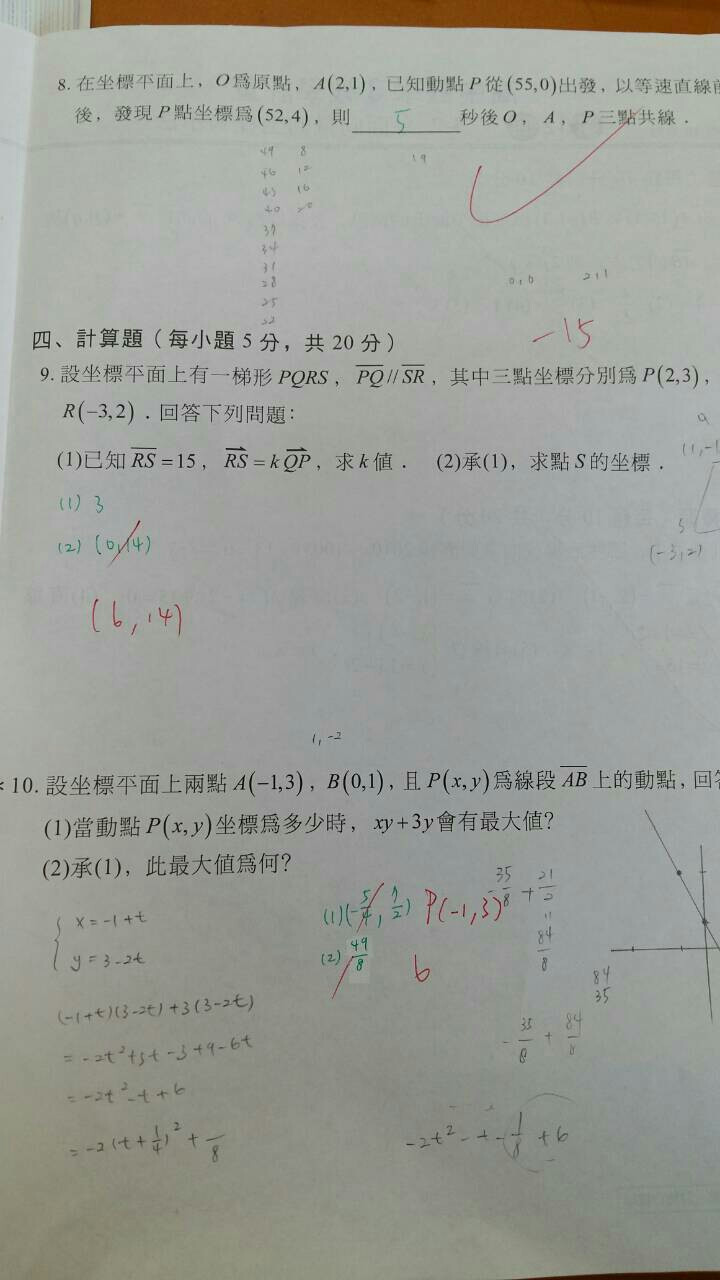 8. 在坐標平面上，O為原點，A(2,1)，已知動點P從(55,0)出發，以等速直線前
後，發現P點坐標為(52,4)，則 5 秒後O，A，P三點共線．
49 8
46 12
43 16
40 20
37
34
31
28
25
22
19
0,0 2,1
-15
四、計算題（每小題5分，共20分）
9. 設坐標平面上有一梯形PQRS，PQ//SR，其中三點坐標分別為P(2,3)，
R(-3,2)．回答下列問題：
(1)已知RS=15，RS=kQP，求k值． (2)承(1)，求點S的坐標．
(1) 3
(2) (0,14)
(6,14)
(-3,2)
1,-2
10. 設坐標平面上兩點A(-1,3)，B(0,1)，且P(x,y)為線段AB上的動點，回答
(1)當動點P(x,y)坐標為多少時，xy+3y會有最大值？
(2)承(1)，此最大值為何？
(1) (-5/4, 7/2) P(-1,3)
(2) 49/8 6
-35/8 + 21/2
84/8
84
35
-35/8 + 84/8
{ x=-1+t
y=3-2t
(-1+t)(3-2t)+3(3-2t)
=-2t²+5t-3+9-6t
=-2t²-t+6
=-2(t+1/4)²+ /8
-2t²-t-1/8+6